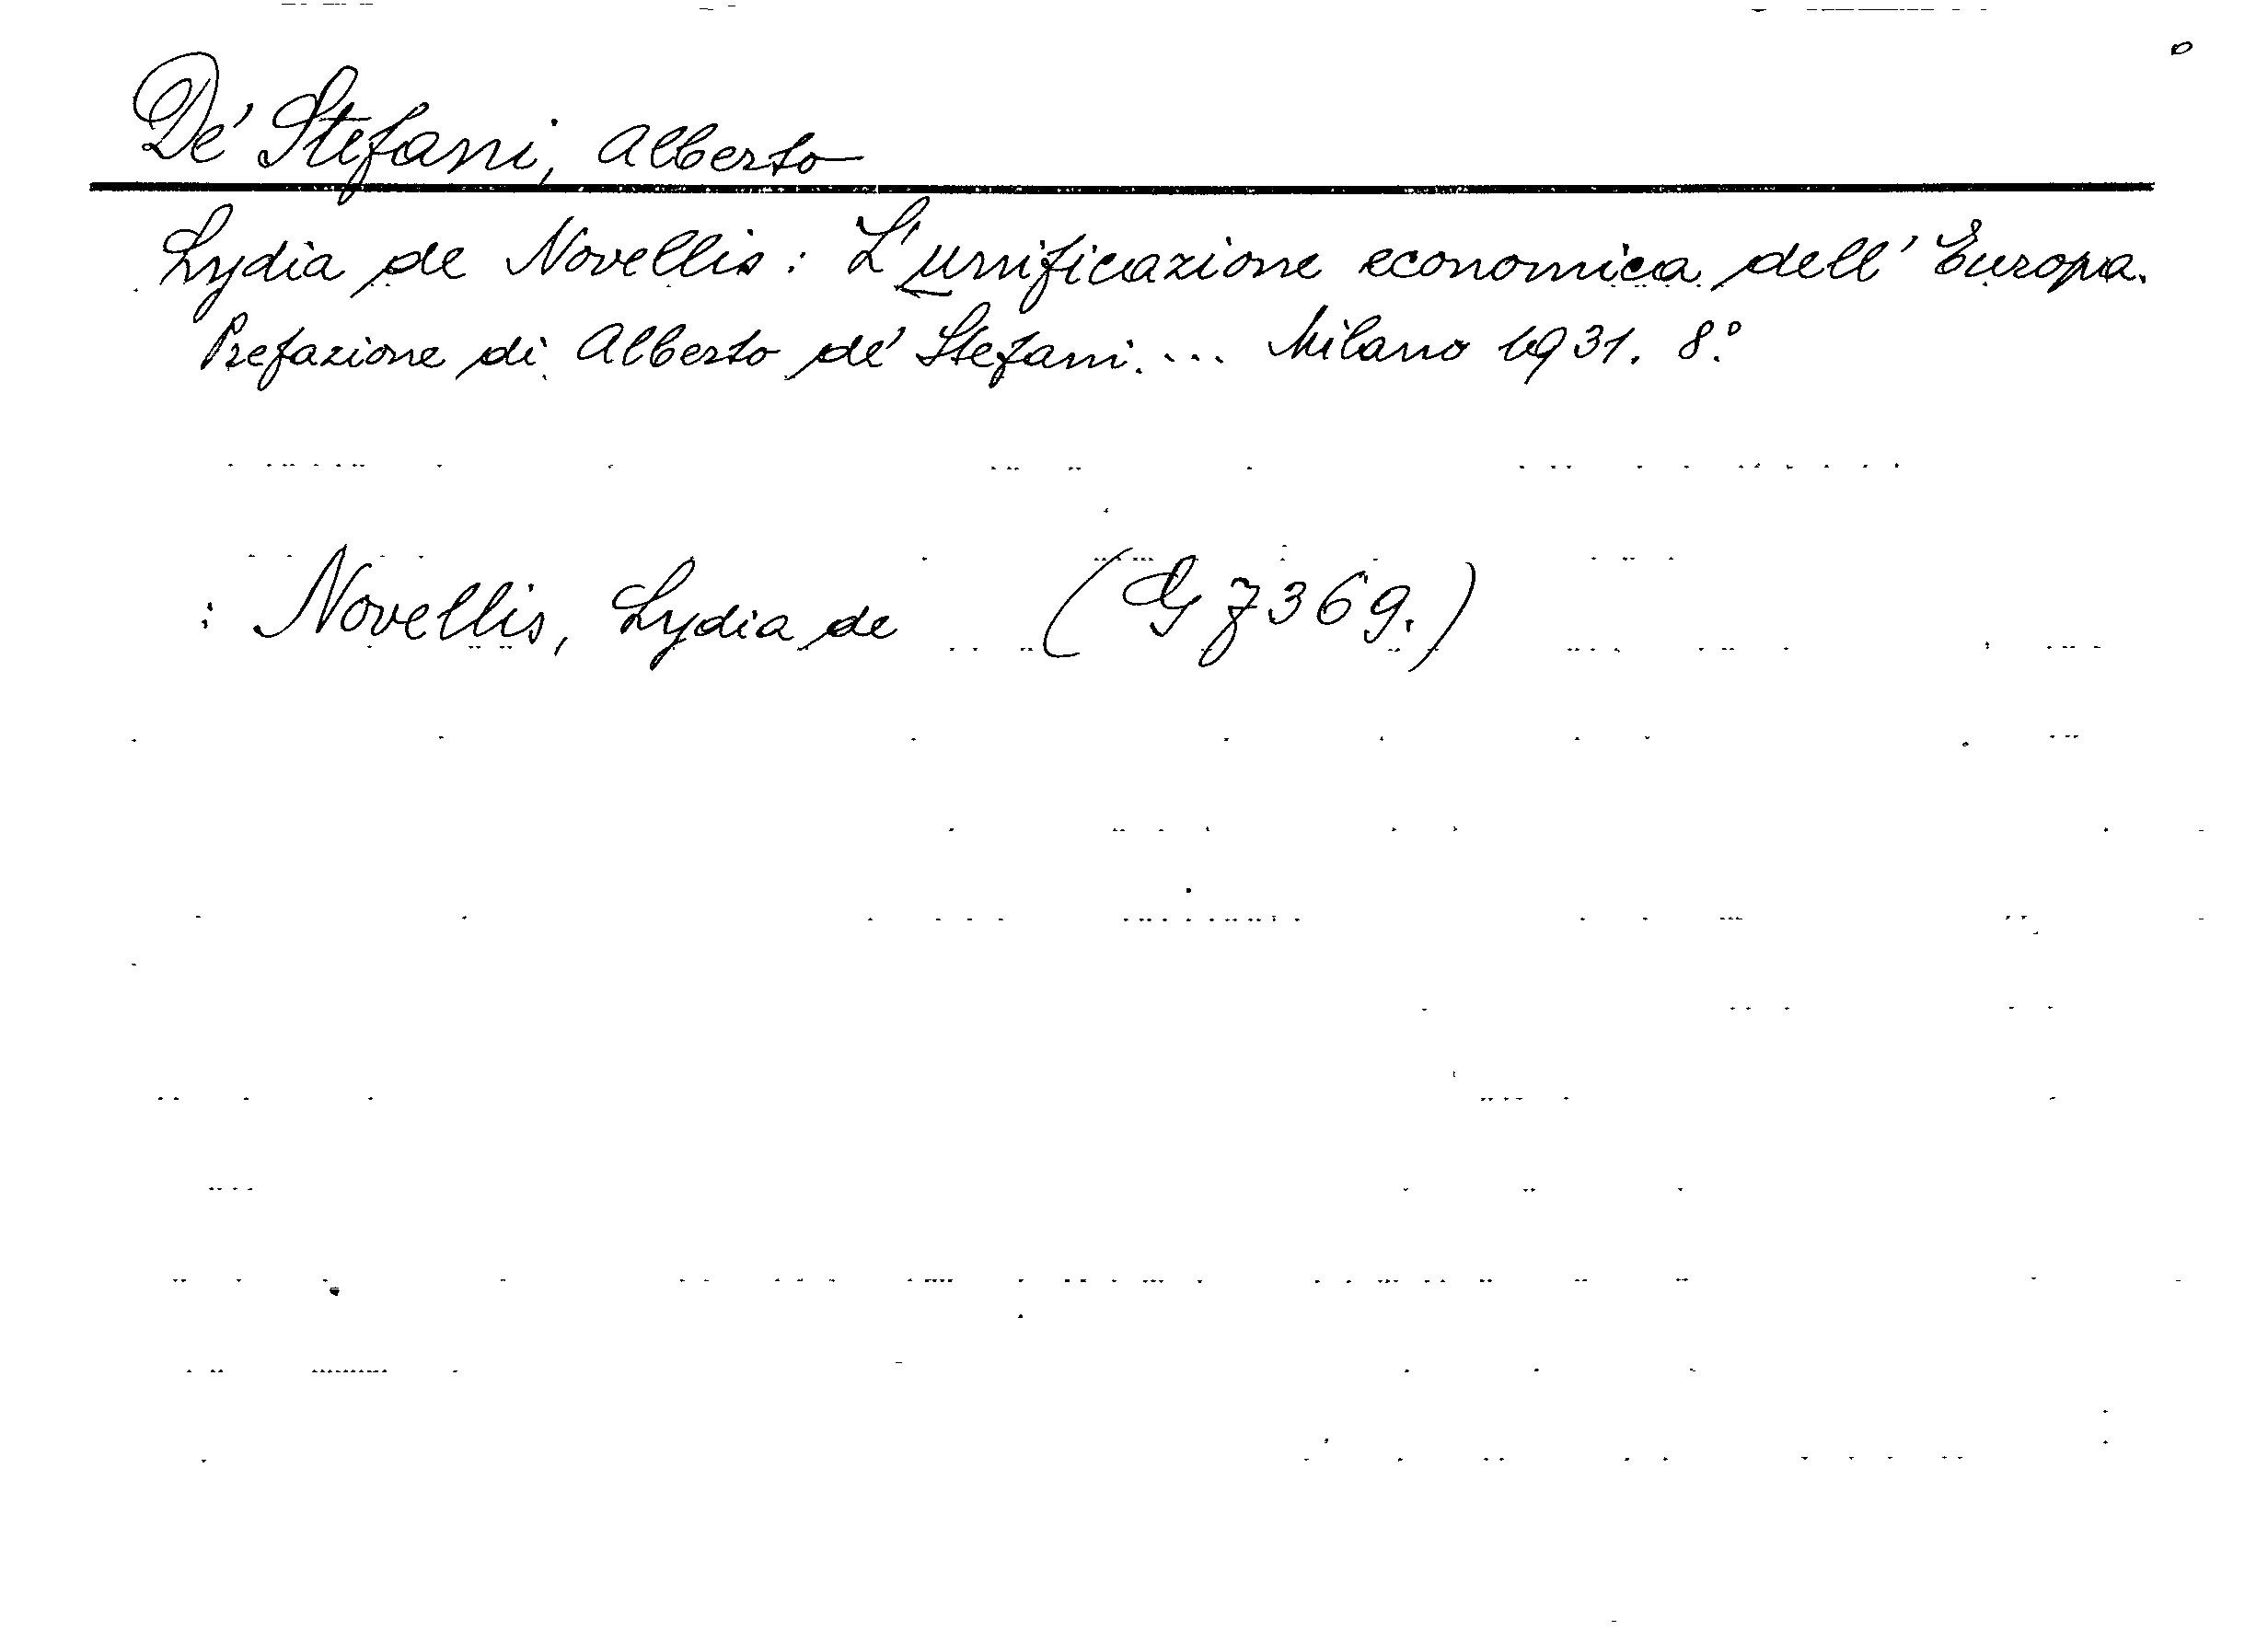 De' Stefani, Alberto
Lydia de Novellis: L'unificazione economica dell' Europa.
Prefazione di Alberto de' Stefani. ... Milano 1931. 8.°
: Novellis, Lydia de (G 7369.)